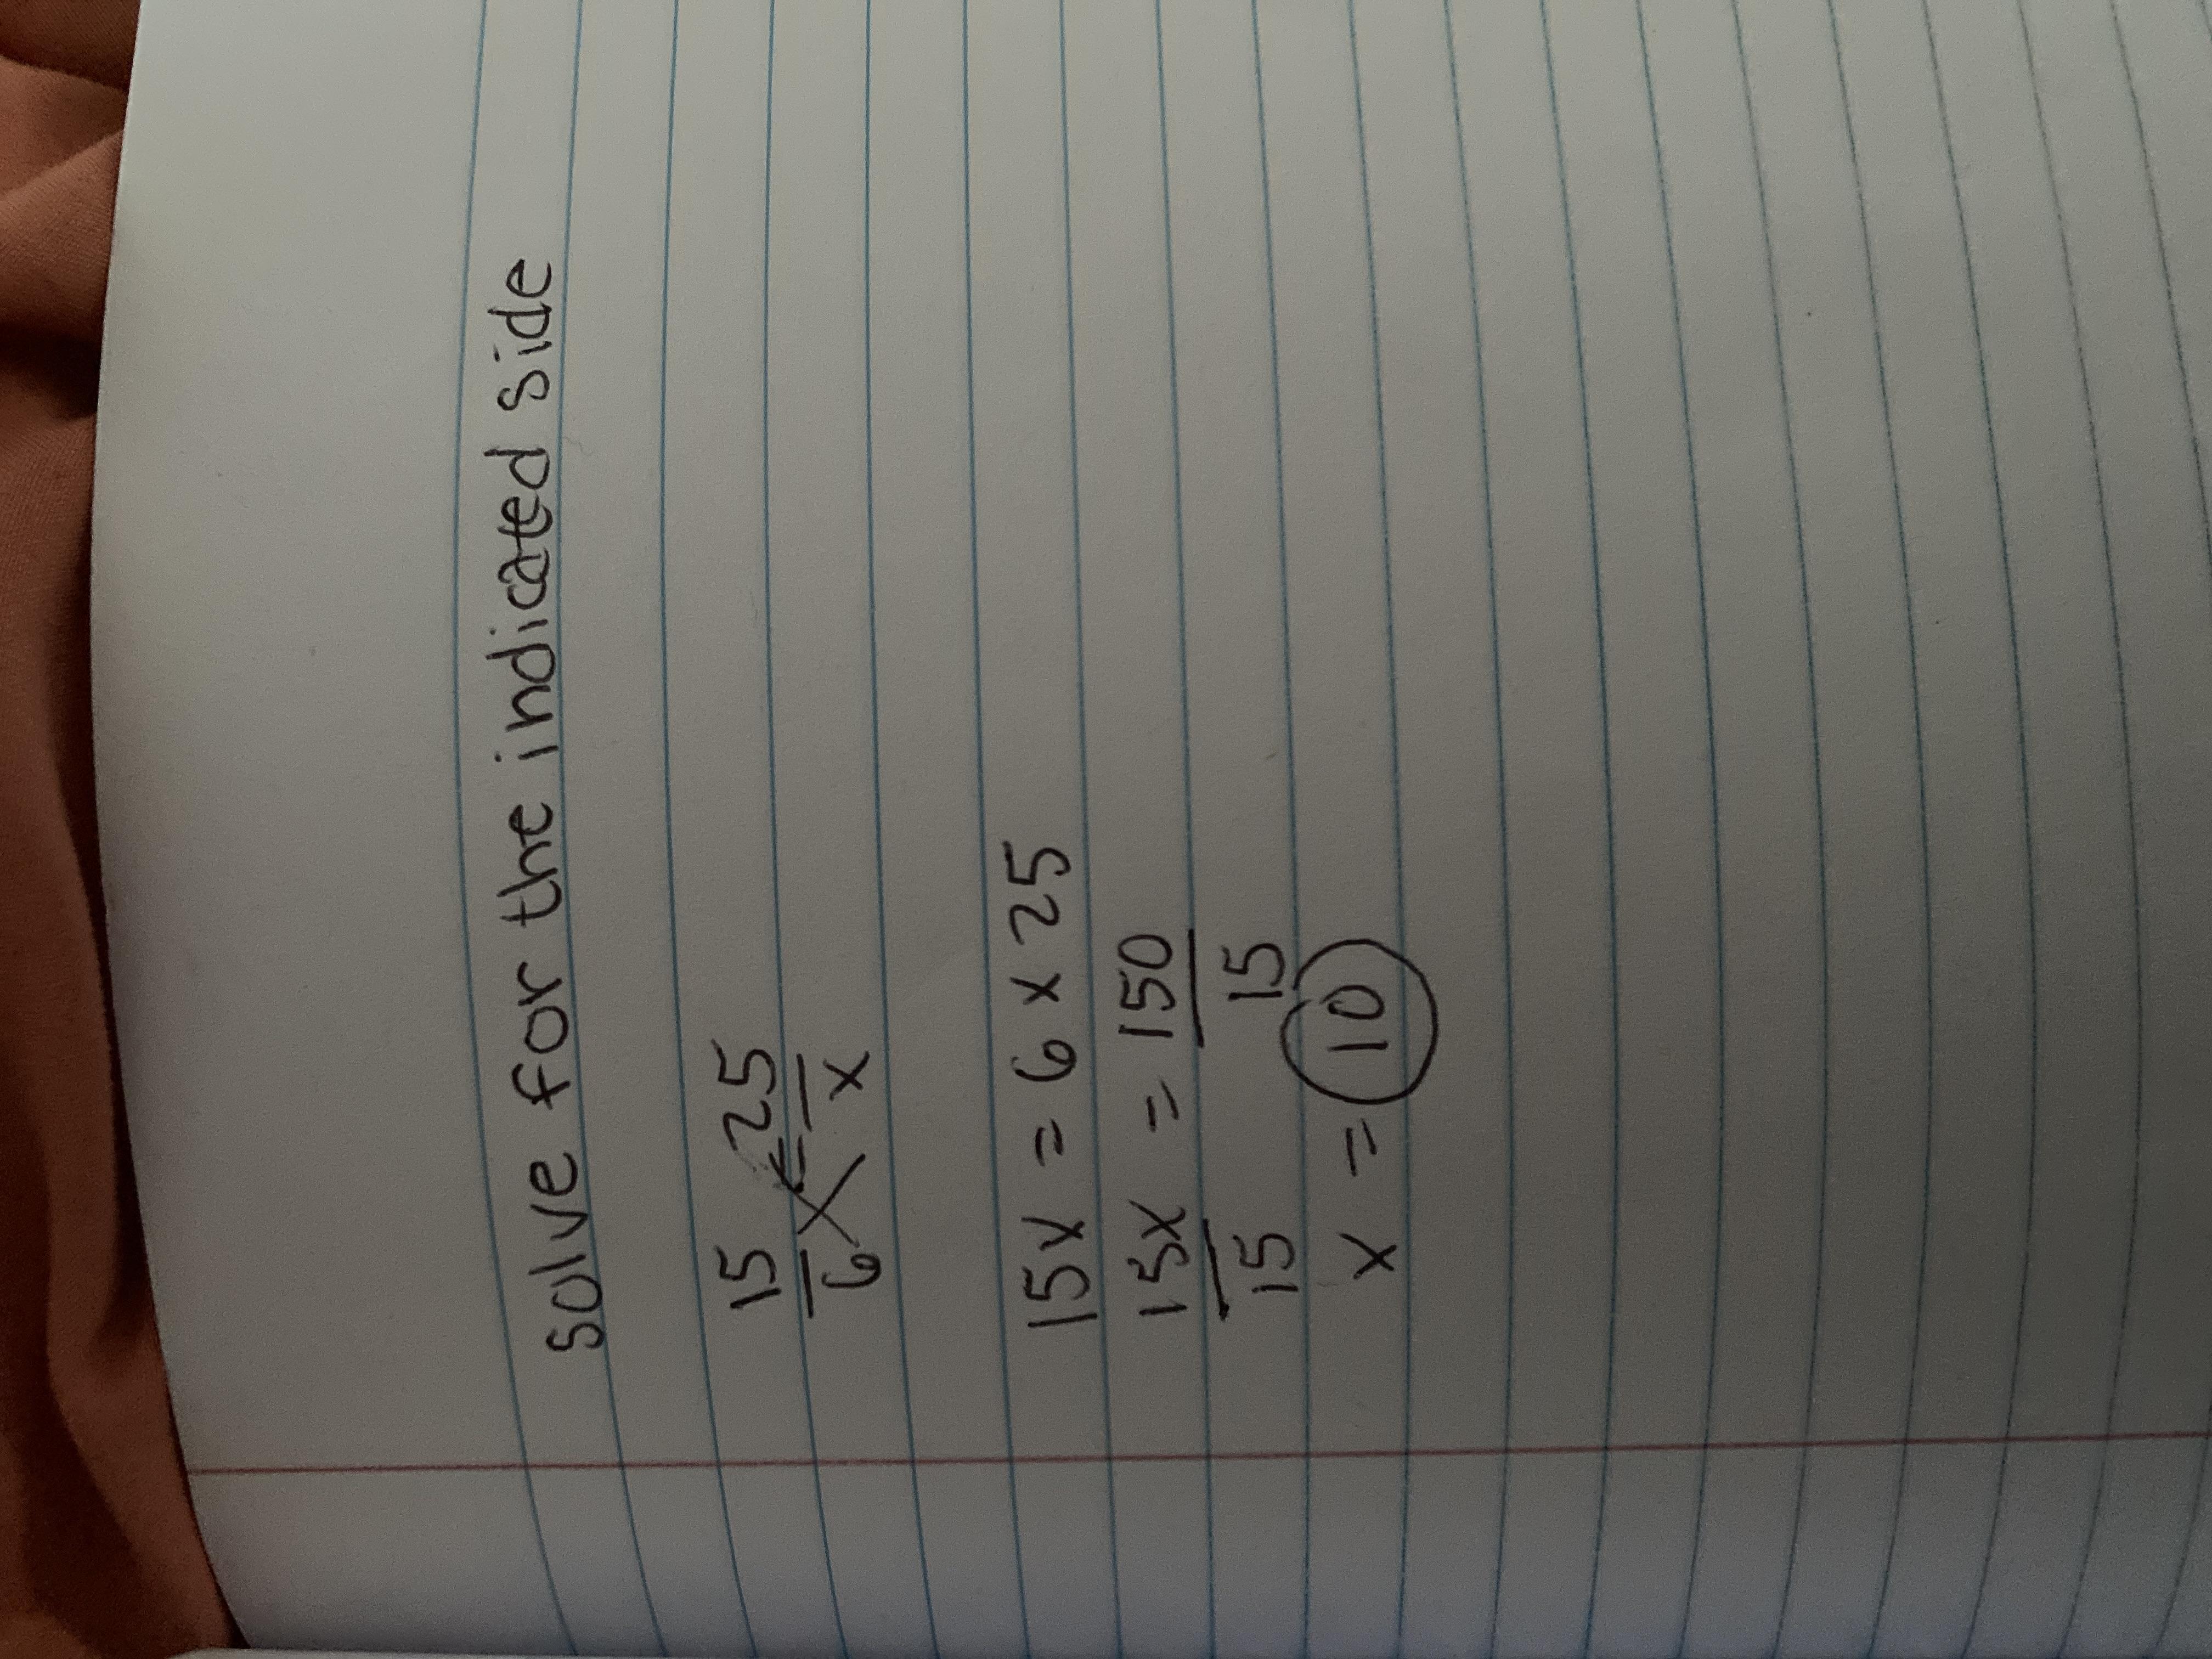 solve for the indicated side
15 25
6 x
15x = 6 x 25
15x = 150
15 15
x = 10